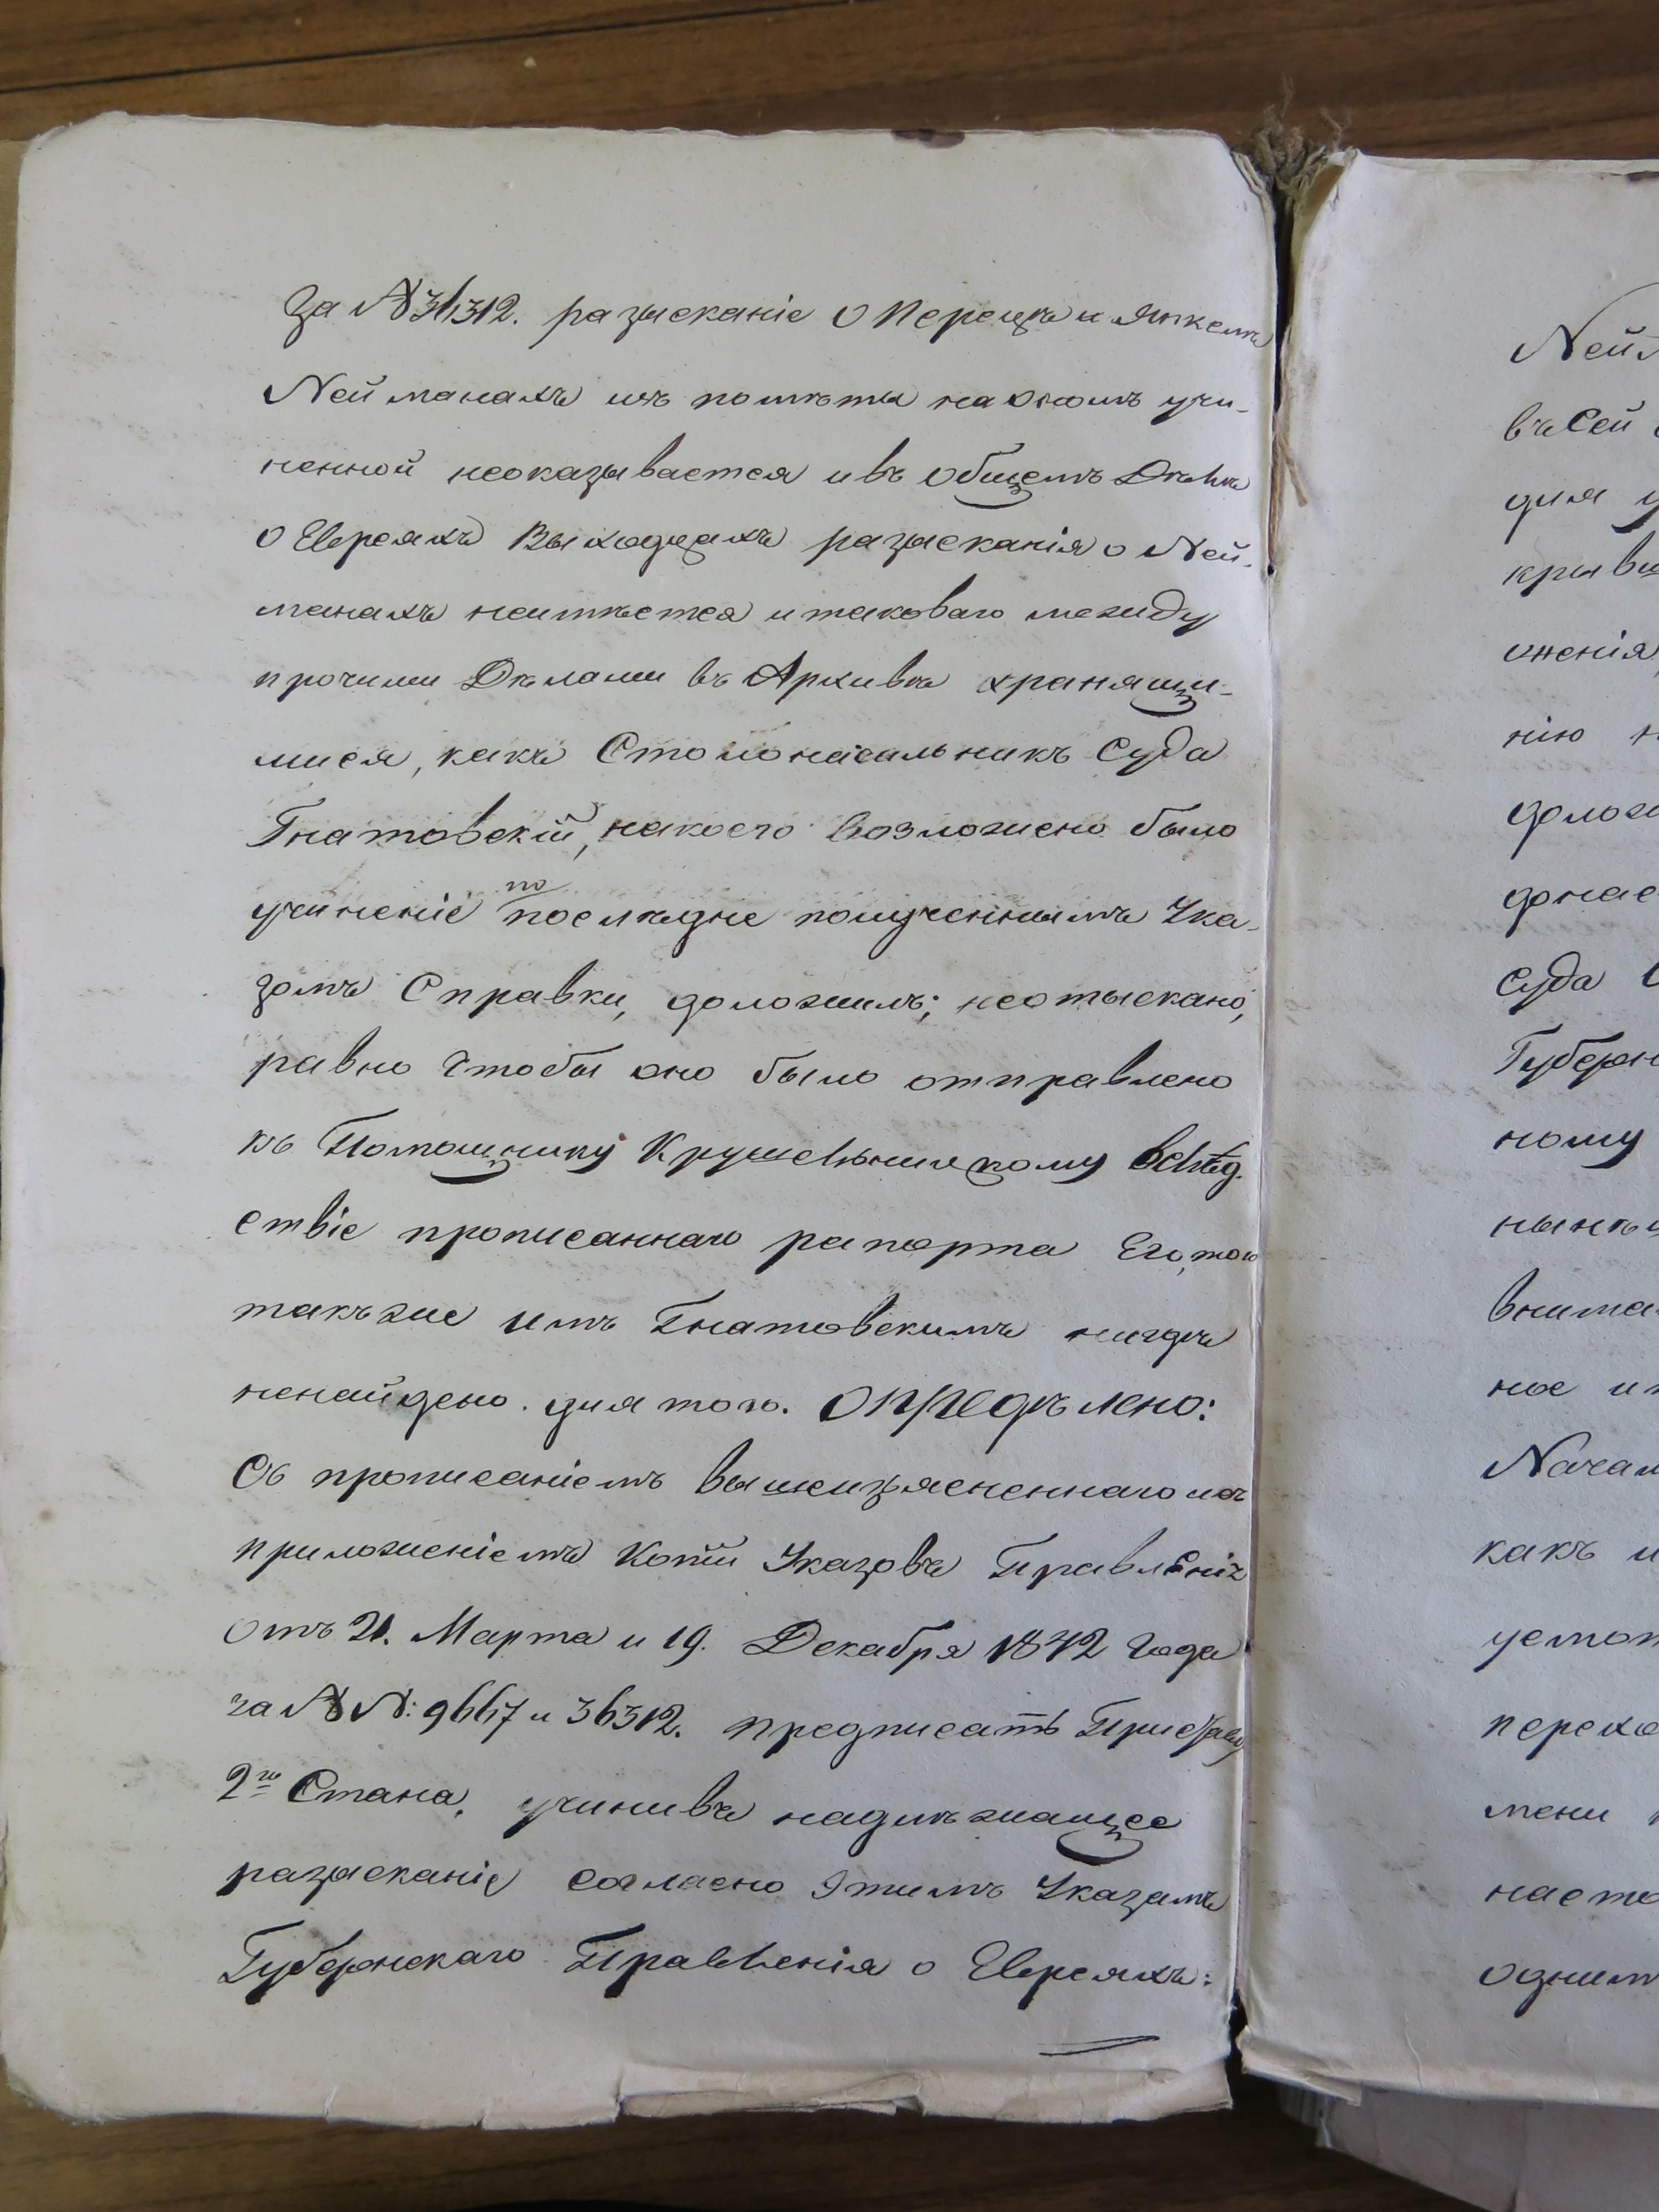 за № 36312. разысканіе о Перецѣ и Янкелѣ
Нейманахъ изъ помѣты на ономъ учи-
ненной неоказывается и въ общемъ Дѣлѣ
о Евреяхъ Выходцахъ разысканія о Ней-
манахъ неимѣется и таковаго между
прочими Дѣлами въ Архивѣ хранящи-
мися, какъ Столоначальникъ Суда
Гнатовскій, на коего возложено было
учиненіе по послѣдне полученнымъ Ука-
зомъ Справки, доложилъ; неотыскано,
равно чтобы оно было отправлено
къ Помощнику Крушельницкому вслѣд-
ствіе прописаннаго рапорта Его, того
такъже имъ Гнатовскимъ нигдѣ
ненайдено. для того. Опредѣлено:
Съ прописаніемъ вышеизясненнаго и съ
приложеніемъ Копій Указовъ Правленія
отъ 21. Марта и 19. Декабря 1842 года
за №№: 9667 и 36312. предписать Приставу
2го Стана, учинивъ надлѣжащее
разысканіе согласно Этимъ Указамъ
Губернскаго Правленія о Евреяхъ:
Ней
въ сей
для
крыв
оненія
нію
долож
донес
Суда
Губерн
ному
нынѣ
внима
ное
Начал
какъ и
усмот
перехо
мени
насто
одним